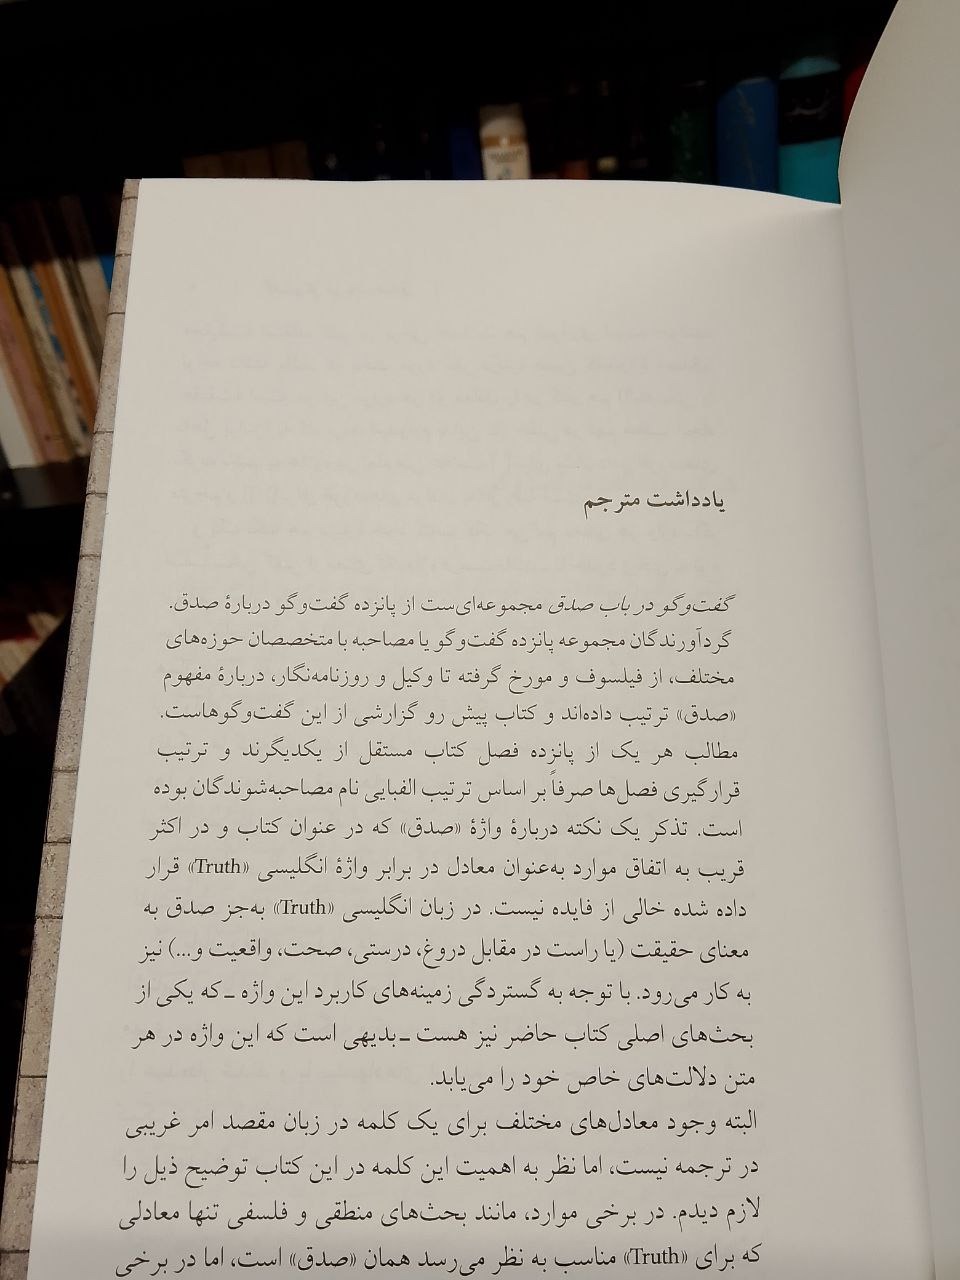 یادداشت مترجم
گفت‌وگو در باب صدق مجموعه‌ای‌ست از پانزده گفت‌وگو دربارهٔ صدق.
گردآورندگان مجموعه پانزده گفت‌وگو یا مصاحبه با متخصصان حوزه‌های
مختلف، از فیلسوف و مورخ گرفته تا وکیل و روزنامه‌نگار، دربارهٔ مفهوم
«صدق» ترتیب داده‌اند و کتاب پیش رو گزارشی از این گفت‌وگوهاست.
مطالب هر یک از پانزده فصل کتاب مستقل از یکدیگرند و ترتیب
قرارگیری فصل‌ها صرفاً بر اساس ترتیب الفبایی نام مصاحبه‌شوندگان بوده
است. تذکر یک نکته دربارهٔ واژهٔ «صدق» که در عنوان کتاب و در اکثر
قریب به اتفاق موارد به‌عنوان معادل در برابر واژهٔ انگلیسی «Truth» قرار
داده شده خالی از فایده نیست. در زبان انگلیسی «Truth» به‌جز صدق به
معنای حقیقت (یا راست در مقابل دروغ، درستی، صحت، واقعیت و...) نیز
به کار می‌رود. با توجه به گستردگی زمینه‌های کاربرد این واژه ـ که یکی از
بحث‌های اصلی کتاب حاضر نیز هست ـ بدیهی است که این واژه در هر
متن دلالت‌های خاص خود را می‌یابد.
البته وجود معادل‌های مختلف برای یک کلمه در زبان مقصد امر غریبی
در ترجمه نیست، اما نظر به اهمیت این کلمه در این کتاب توضیح ذیل را
لازم دیدم. در برخی موارد، مانند بحث‌های منطقی و فلسفی تنها معادلی
که برای «Truth» مناسب به نظر می‌رسد همان «صدق» است، اما در برخی